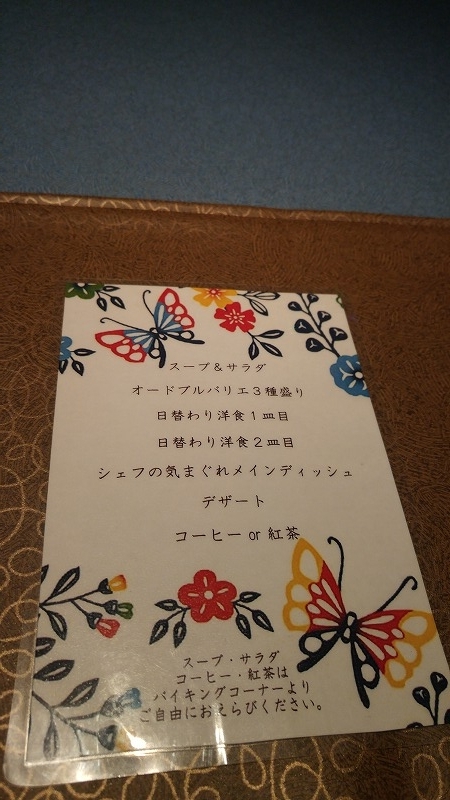 スープ＆サラダ
オードブルバリエ３種盛り
日替わり洋食１皿目
日替わり洋食２皿目
シェフの気まぐれメインディッシュ
デザート
コーヒー or 紅茶
スープ・サラダ
コーヒー・紅茶は
バイキングコーナーより
ご自由におえらびください。